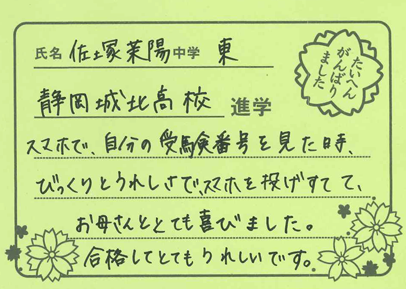 氏名 佐塚茉陽 中学 東
たいへん
がんばり
ました
静岡城北高校 進学
スマホで、自分の受験番号を見た時、
びっくりとうれしさでスマホを投げすてて、
お母さんととても喜びました。
合格してとてもうれしいです。